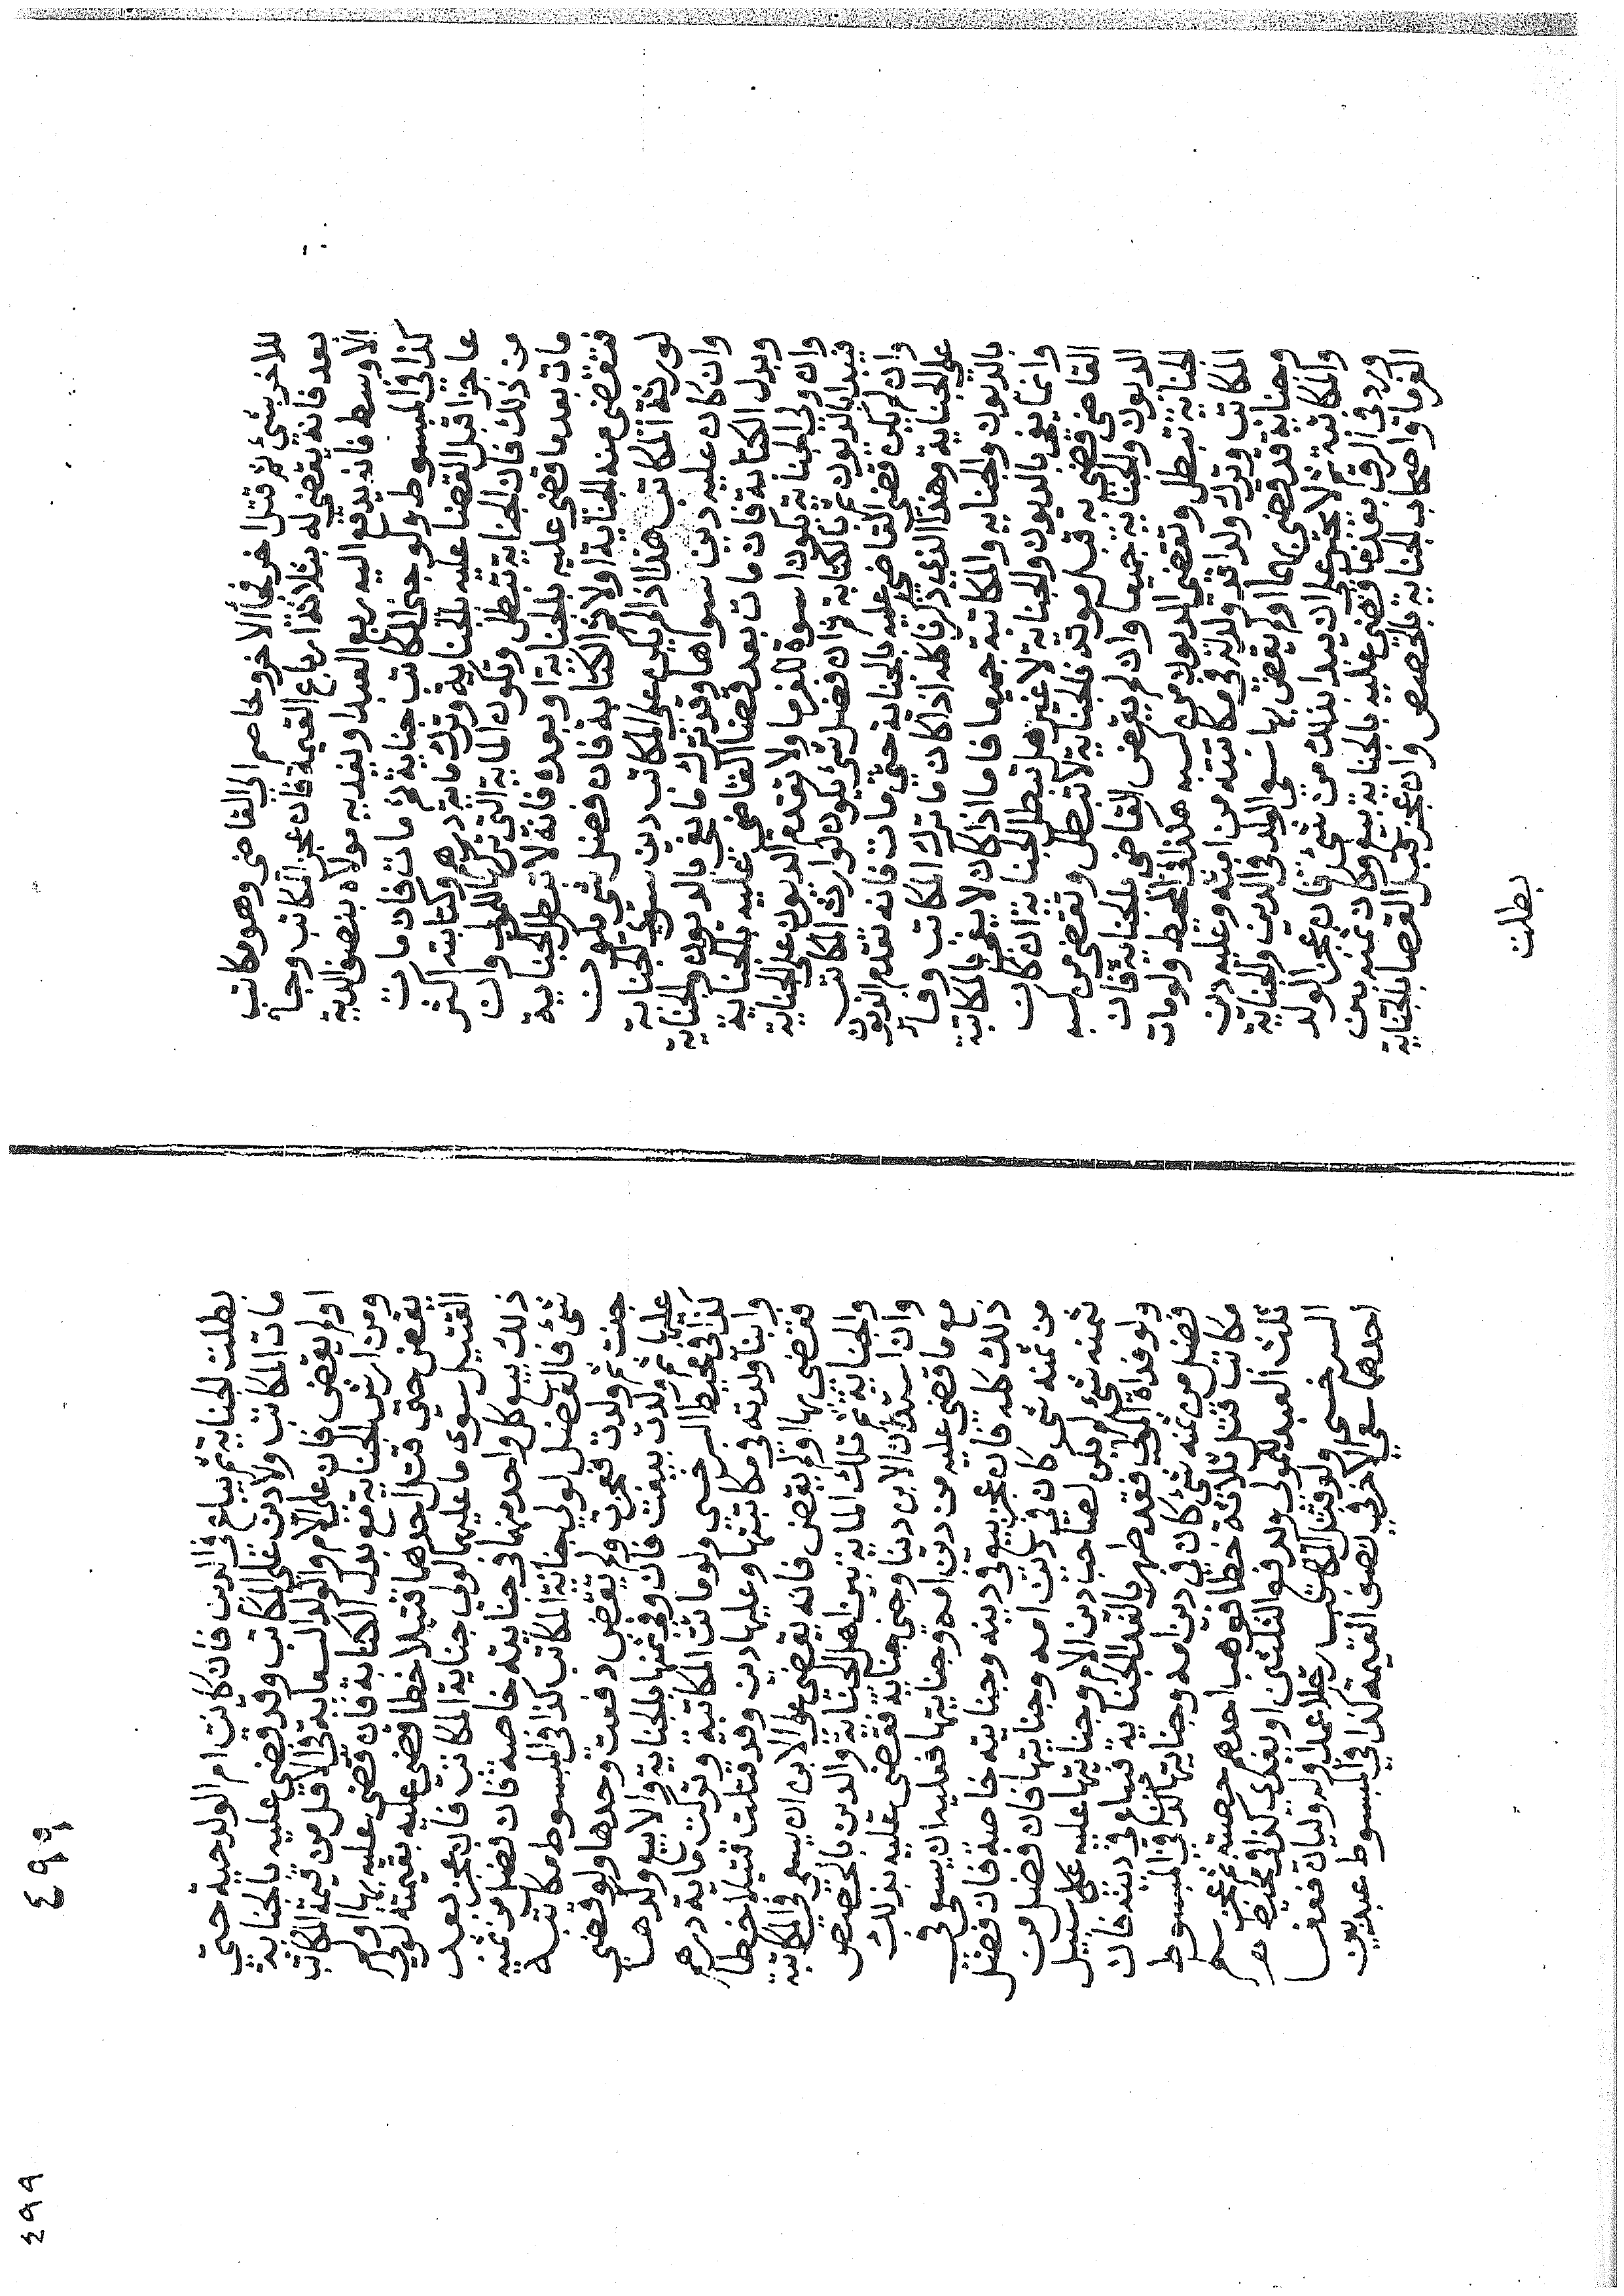 للاخر بشئ ثم قتل اخر فجأ الاخر وخاصم الى القاضى وهو مكاتب
بعد فانه يقضي له بثلاثة ارباع القيمة فان عجز المكاتب وجأ
الاوسط فانه يدفع اليه ربع العبد او يفديه مولاه بنصف الدية
كذا في المبسوط ولو جنى المكاتب جناية ثم مات فان مات
عاجزا قبل القضا عليه بالجناية وترك ماية درهم وكتابته اكثر
من ذلك فان الجناية تبطل وتكون الماية التى تركها للمولى وان
مات بعد ما قضي عليه بالجناية او بعده فانه لا تبطل الجناية
فتقضى منه الجناية اولا ثم الكتابة فان فضل شئ يكون
لورثة المكاتب هذا اذا لم يكن على المكاتب دين سوى الجناية
وان كان عليه دين سواها وقد ترك ما يفي بالديون والجناية
وبدل الكتابة فان مات بعد قضا القاضي عليه بالجناية
وان ولى الجناية يكون اسوة للغرما ولا تقدم الديون على الجناية
فيبدا بالديون ثم بالكتابة ثم ان فضل شئ يكون لوارث المكاتب
وان لم يكن قضى القاضي عليه بالجناية حتى مات فانه تقدم الديون
على الجناية وهذا الذي ذكرنا كله اذا كان ما ترك المكاتب وفا
بالديون والجناية والمكاتبة جميعا فاما اذا كان لا يفي بالمكاتبة
وانما يفى بالديون والجناية لا غير هل تبطل الجناية ان كان
القاضى قضى به قبل موته فالجناية لا تبطل وتقضى من كسبه
الديون والجناية جميعا وان لم يقض القاضي بالجناية فان
الجناية تبطل وتقضى الديون من كسبه هكذا في المحيط ولو مات
المكاتب وترك ولدا قد ولد له في مكاتبته من امته وعليه دين
وجناية قد قضى بها او لم يقض بها سعى الولد في الدين والجناية
والمكاتبة ثم لا يجبر على ان يبدا بذلك من شئ فان عجز الولد
ورد في الرق بعد ما قضي عليه بالجناية بيع وكان ثمنه بين
الغرما واصحاب الجناية بالحصص وان عجز قبل القضا بالجناية
بطلت
بطلت الجناية ثم يباع في الدين فان كانت ام الولد حية حتى
مات المكاتب ولا دين على المكاتب وقد قضي عليه بالجناية
او لم يقض فان على الام والولد السعاية في الاقل من قيمة المكاتب
ومن ارش الجناية مع بدل الكتابة فان قضي عليه بها او لم
يقض حتى قتل احدهما قتيلا خطا قضي عليه بقيمته لولي
القتيل سوى ما عليهما لولي جناية المكاتب فان عجز بعد
ذلك بيع كل واحد منهما في جنايته خاصة فان فضل من ثمنه
شئ فالفضل لولي جناية المكاتب كذا في المبسوط مكاتبة
جنت ثم ولدت فعجزت ولم يقض دفعت وحدها ولو قضي
عليها ثم ولدت بيعت فان وفى ثمنها بالجناية والا بيع ولدها
كذا في محيط السرخسي ولو ماتت المكاتبة وتركت ماية درهم
وابنا ولدته في مكاتبتها وعليها دين وقد قتلت قتيلا خطا
فقضى بها او لم يقض فانه يقضى على الابن ان يسعى في المكاتبة
والجناية ثم تلك الماية بين اهل الجناية والدين بالحصص
وان استدان الابن دينا وجنى جناية فقضى عليه بذلك
مع ما قضي عليه من دين امه وجنايتها فعليه ان يسعى في
ذلك كله فان عجز بيع في دينه وجنايته خاصة فان فضل
من ثمنه شئ كان في دين امه وجنايتها فان فضل من
ثمنه شئ لم يكن لصاحب دين الام وجنايتها عليه سبيل
ولو فداه المولى فقد طهر بالفدا الجناية فيباع في دينه فان
فضل من ثمنه شئ كان في دين امه وجنايتها كذا في المبسوط
مكاتب قتل ثلاثة خطا فوهب احدهم حصته ثم عجز سلم
ثلث العبد للمولى ودفع الثلثين او يفدى كذا في محيط
السرخسي ولو قتل المكاتب رجلا عمدا وله وليان فعفى
احدهما سعى الاخر في نصف القيمة كذا في المبسوط عبد بين
٤٩٩
٤٩٩